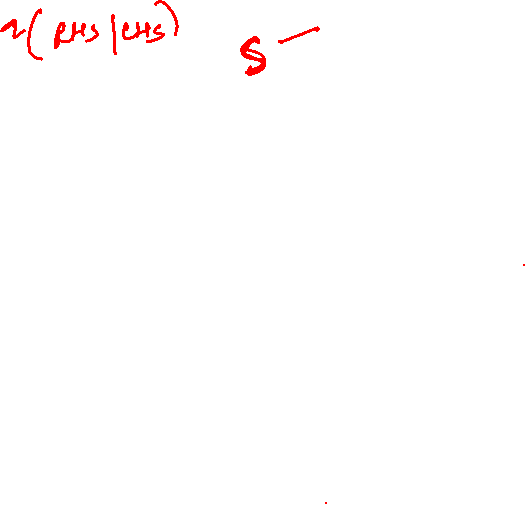 (RHS | LHS) S